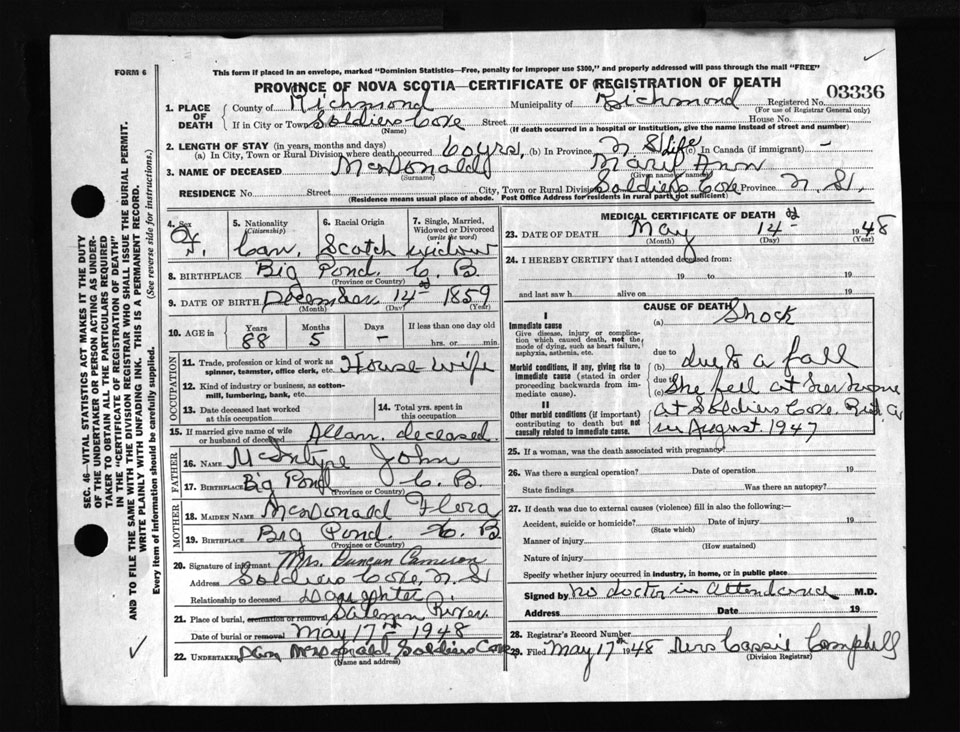 FORM 6
This form if placed in an envelope, marked "Dominion Statistics—Free, penalty for improper use $300," and properly addressed will pass through the mail "FREE"
PROVINCE OF NOVA SCOTIA—CERTIFICATE OF REGISTRATION OF DEATH
03336
1. PLACE OF DEATH County of Richmond Municipality of Richmond Registered No.
(For use of Registrar General only)
If in City or Town Soldiers Cove Street House No.
(Name) (If death occurred in a hospital or institution, give the name instead of street and number)
2. LENGTH OF STAY (in years, months and days)
(a) In City, Town or Rural Division where death occurred 60 yrs, (b) In Province N S Life (c) In Canada (if immigrant) -
3. NAME OF DECEASED McDonald Mary Ann
(Surname) (Given name or names)
RESIDENCE No. Street City, Town or Rural Division Soldiers Cove Province N. S.
(Residence means usual place of abode. Post Office Address for residents in rural parts not sufficient)
4. Sex 5. Nationality (Citizenship) 6. Racial Origin 7. Single, Married, Widowed or Divorced (write the word)
F. Can. Scotch widow
8. BIRTHPLACE Big Pond. C. B.
(Province or Country)
9. DATE OF BIRTH December 14 1859
(Month) (Day) (Year)
10. AGE in Years Months Days If less than one day old
88 5 - hrs. or min.
OCCUPATION
11. Trade, profession or kind of work as spinner, teamster, office clerk, etc. House wife
12. Kind of industry or business, as cotton-mill, lumbering, bank, etc.
13. Date deceased last worked at this occupation
14. Total yrs. spent in this occupation
15. If married give name of wife or husband of deceased Allan. deceased.
FATHER
16. NAME McIntyre John
17. BIRTHPLACE Big Pond C. B.
(Province or Country)
MOTHER
18. MAIDEN NAME McDonald Flora
19. BIRTHPLACE Big Pond. C. B
(Province or Country)
20. Signature of informant Mrs. Duncan Cameron
Address Soldiers Cove, N. S.
Relationship to deceased Daughter
21. Place of burial, cremation or removal Salmon River
Date of burial or removal May 17th 1948
22. Undertaker Dan McDonald Soldiers Cove
(Name and address)
MEDICAL CERTIFICATE OF DEATH
23. DATE OF DEATH May 14 1948
(Month) (Day) (Year)
24. I HEREBY CERTIFY that I attended deceased from
19 to 19
and last saw h alive on 19
CAUSE OF DEATH
I
Immediate cause
Give disease, injury or complication which caused death, not the mode of dying, such as heart failure, asphyxia, asthenia, etc.
(a) Shock
due to
Morbid conditions, if any, giving rise to immediate cause (stated in order proceeding backwards from immediate cause).
(b) due to a fall
due to
(c) She fell at her home
II
Other morbid conditions (if important) contributing to death but not causally related to immediate cause.
at Soldiers Cove. Rich Co
in August. 1947
25. If a woman, was the death associated with pregnancy?
26. Was there a surgical operation? Date of operation 19
State findings Was there an autopsy?
27. If death was due to external causes (violence) fill in also the following:—
Accident, suicide or homicide? Date of injury 19
(State which)
Manner of injury
(How sustained)
Nature of injury
Specify whether injury occurred in industry, in home, or in public place
Signed by no doctor in attendance M.D.
Address Date 19
28. Registrar's Record Number
29. Filed May 17th 1948 Mrs Cassie Campbell
(Division Registrar)
SEC. 46—VITAL STATISTICS ACT MAKES IT THE DUTY
OF THE UNDERTAKER OR PERSON ACTING AS UNDER-
TAKER TO OBTAIN ALL THE PARTICULARS REQUIRED
IN THE "CERTIFICATE OF REGISTRATION OF DEATH"
AND TO FILE THE SAME WITH THE DIVISION REGISTRAR WHO SHALL ISSUE THE BURIAL PERMIT.
WRITE PLAINLY WITH UNFADING INK. THIS IS A PERMANENT RECORD.
Every item of information should be carefully supplied. (See reverse side for instructions.)